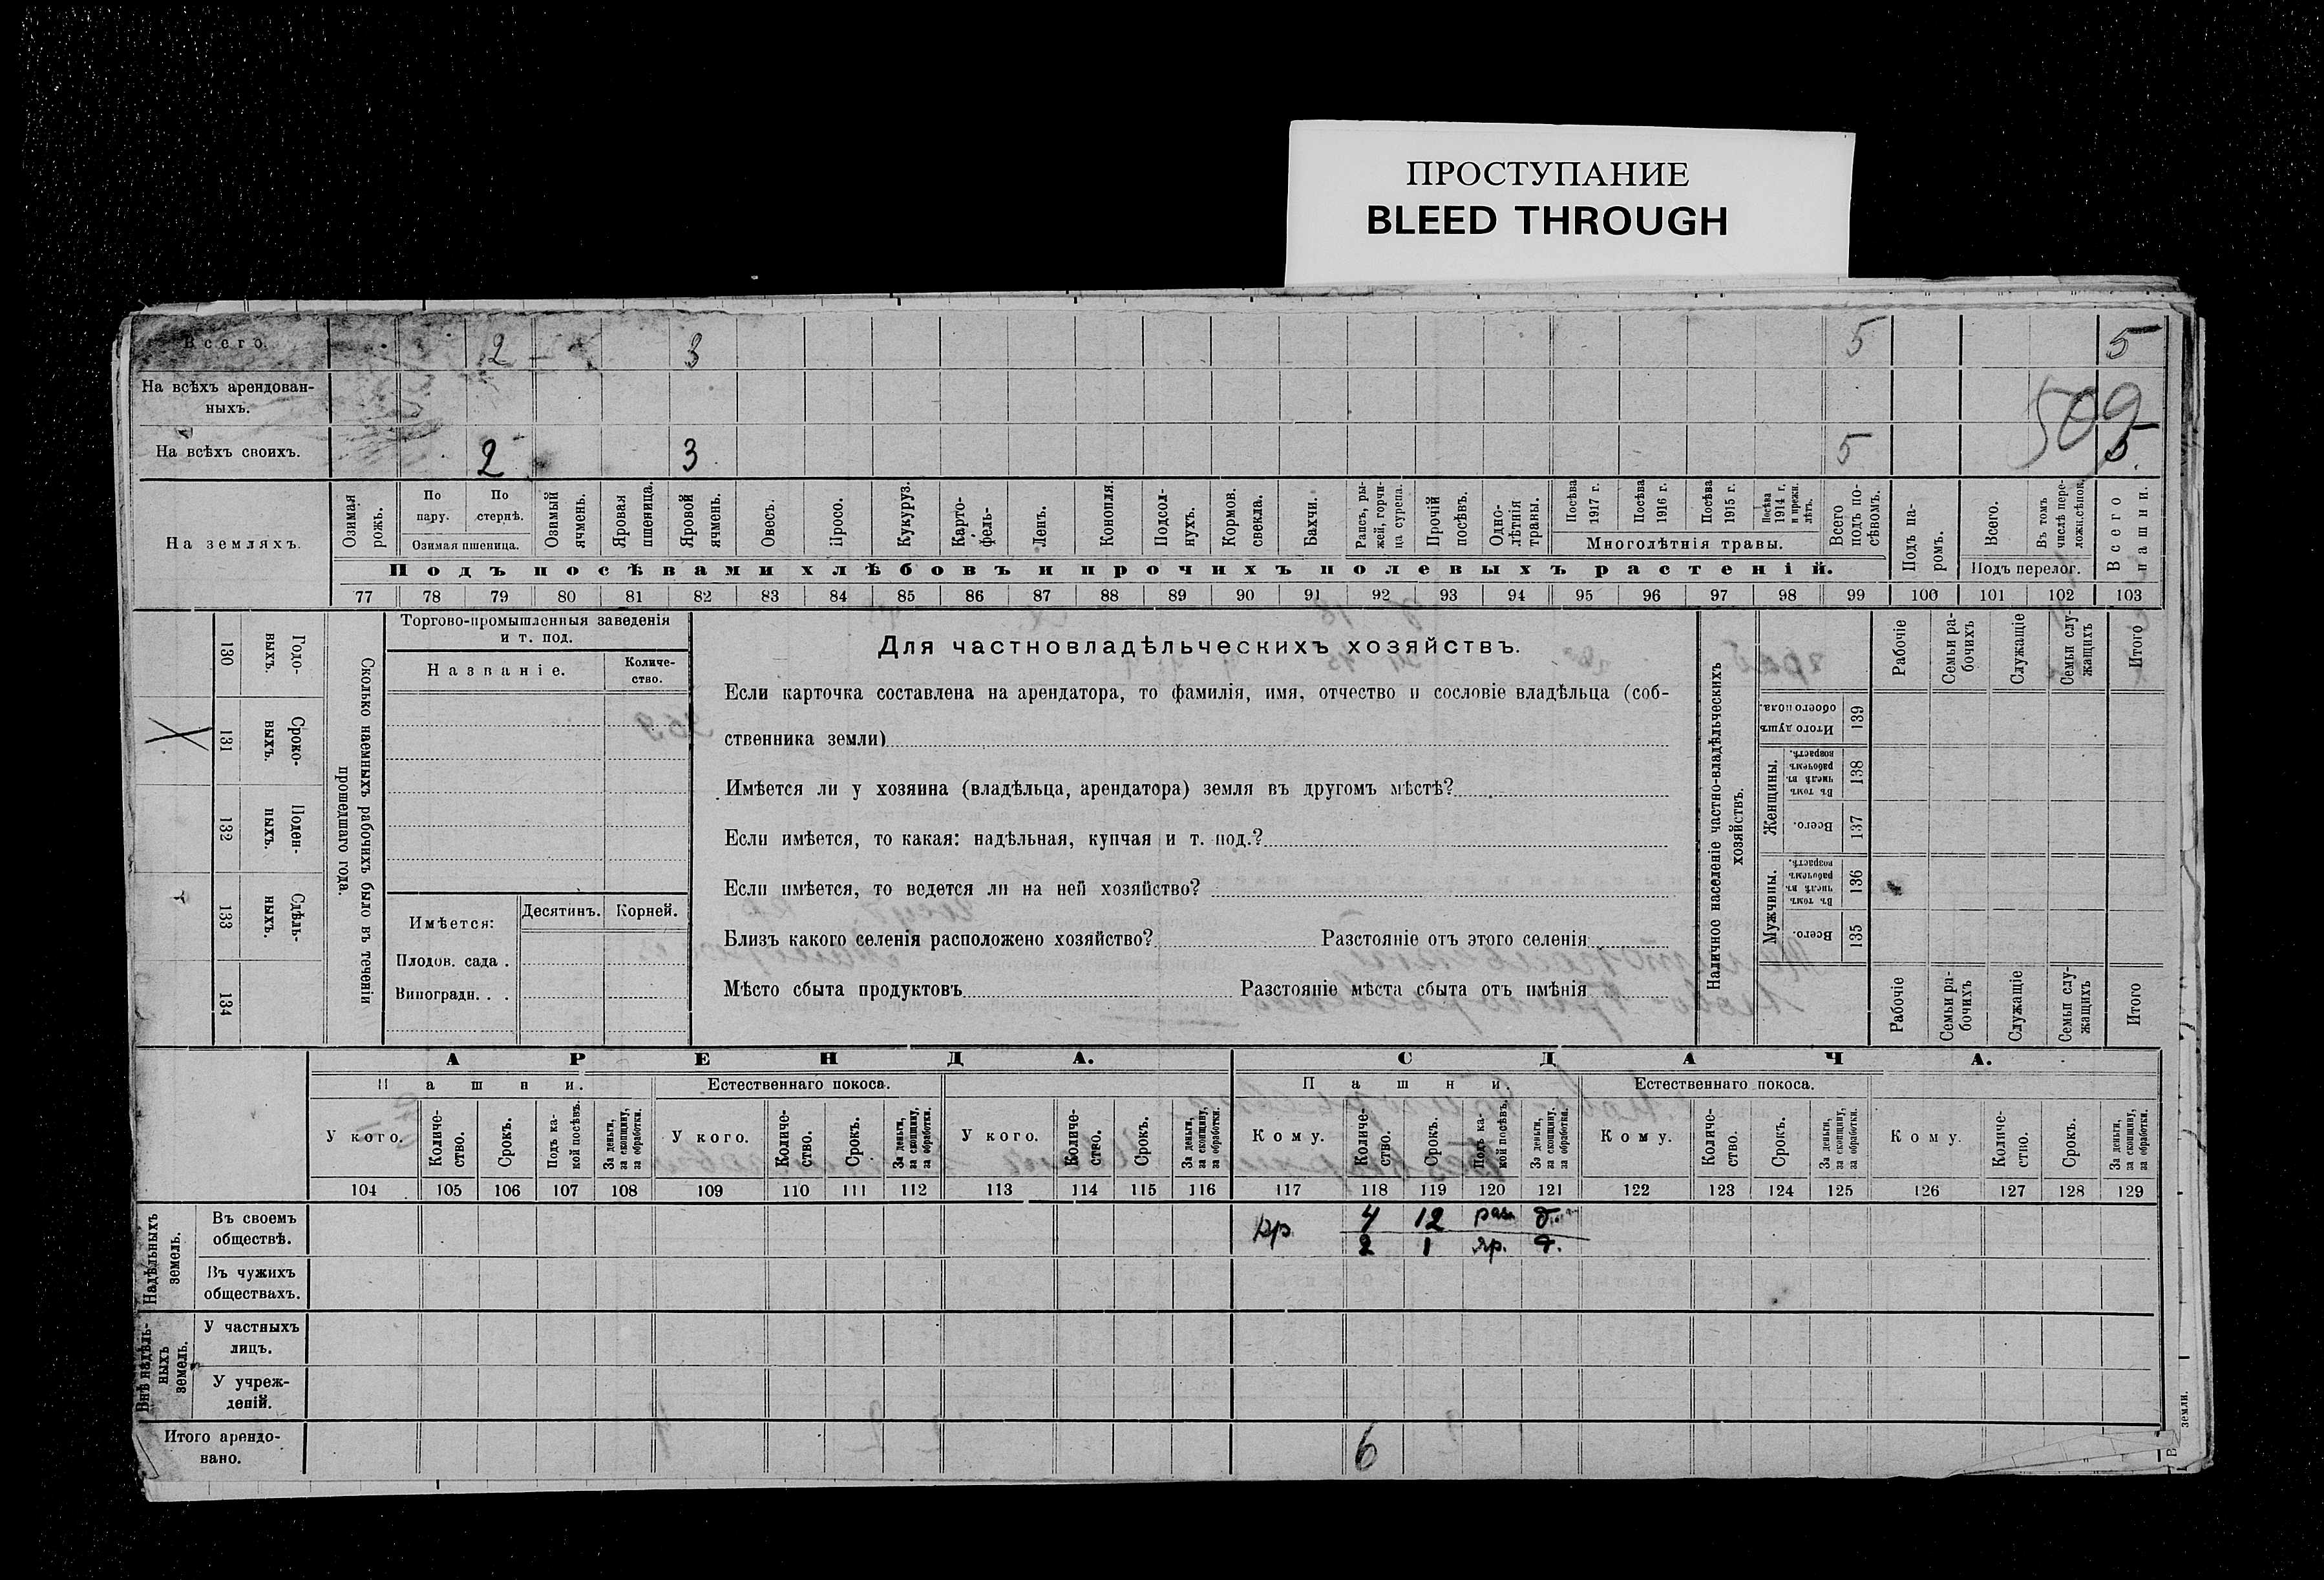 ПРОСТУПАНИЕ
BLEED THROUGH
Всего. 2 3 5 5
На всѣхъ арендован-
ныхъ.
509
На всѣхъ своихъ. 2 3 5 5
На земляхъ.
Озимая рожь.
По пару.
По стернѣ.
Озимая пшеница.
Озимый ячмень.
Яровая пшеница.
Яровой ячмень.
Овесъ.
Просо.
Кукуруз.
Карто-
фель-
Ленъ.
Конопля.
Подсол-
нухъ.
Кормов. свекла.
Бахчи.
Рапсъ, ры-
жей, горчи-
ца сурепа.
Прочій посѣвъ.
Одно-
лѣтнія травы.
Посѣва 1917 г.
Посѣва 1916 г.
Посѣва 1915 г.
Посѣва 1914 г. и прежн. лѣтъ.
Многолѣтнія травы.
Всего подъ по-
сѣвомъ.
Подъ па-
ромъ.
Всего.
Въ томъ числѣ пере-
ложн.сѣнок.
Подъ перелог.
Всего пашни.
Подъ посѣвами хлѣбовъ и прочихъ полевыхъ растеній.
77 78 79 80 81 82 83 84 85 86 87 88 89 90 91 92 93 94 95 96 97 98 99 100 101 102 103
130 Годо-
выхъ.
131 Сроко-
выхъ.
132 Поден-
ныхъ.
133 Сдѣль-
ныхъ.
134
Сколько наемныхъ рабочихъ было въ теченіи
прошедшаго года.
Торгово-промышленныя заведенія
и т. под.
Названіе.
Количе-
ство.
Имѣется:
Десятинъ.
Корней.
Плодов. сада .
Виноградн. . .
Для частновладѣльческихъ хозяйствъ.
Если карточка составлена на арендатора, то фамилія, имя, отчество и сословіе владѣльца (соб-
ственника земли)
Имѣется ли у хозяина (владѣльца, арендатора) земля въ другомъ мѣстѣ?
Если имѣется, то какая: надѣльная, купчая и т. под.?
Если имѣется, то ведется ли на ней хозяйство?
Близъ какого селенія расположено хозяйство? Разстояніе отъ этого селенія
Мѣсто сбыта продуктовъ Разстояніе мѣста сбыта отъ имѣнія
Наличное населеніе частно-владѣльческихъ
хозяйствъ.
Рабочіе
Семьи ра-
бочихъ
Служащіе
Семьи слу-
жащихъ
Итого
Итого душъ обоего пола. 139
Женщины.
Въ томъ числѣ въ рабочемъ возрастѣ. 138
Всего. 137
Мужчины.
Въ томъ числѣ въ рабочемъ возрастѣ. 136
Всего. 135
Рабочіе
Семьи ра-
бочихъ
Служащіе
Семьи слу-
жащихъ
Итого
АРЕНДА. СДАЧА.
Пашни. Естественнаго покоса. Пашни. Естественнаго покоса.
У кого.
Количе-
ство.
Срокъ.
Подъ ка-
кой посѣвъ.
За деньги,
за скопщину,
за обработки.
У кого.
Количе-
ство.
Срокъ.
За деньги,
за скопщину,
за обработки.
У кого.
Количе-
ство.
Срокъ.
За деньги,
за скопщину,
за обработки.
Кому.
Количе-
ство.
Срокъ.
Подъ ка-
кой посѣвъ.
За деньги,
за скопщину,
за обработки.
Кому.
Количе-
ство.
Срокъ.
За деньги,
за скопщину,
за обработки.
Кому.
Количе-
ство.
Срокъ.
За деньги,
за скопщину,
за обработки.
104 105 106 107 108 109 110 111 112 113 114 115 116 117 118 119 120 121 122 123 124 125 126 127 128 129
Надѣльныхъ земель.
Въ своемъ
обществѣ.
кр. 4 12
2 1 яр.
Въ чужихъ
обществахъ.
Внѣ надѣль-
ныхъ
земель.
У частныхъ
лицъ.
У учреж-
деній.
Итого арендо-
вано.
6
земли.